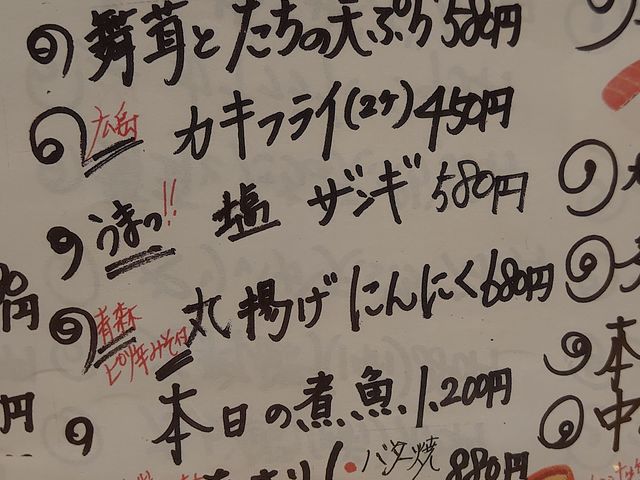 舞茸とたちの天ぷら 580円
広島 カキフライ(2ケ) 450円
うまっ!! 塩 ザンギ 580円
青森 丸揚げにんにく 680円
ピリ辛みそ付
本日の煮魚 1,200円
バター焼 880円
円
円
本
中